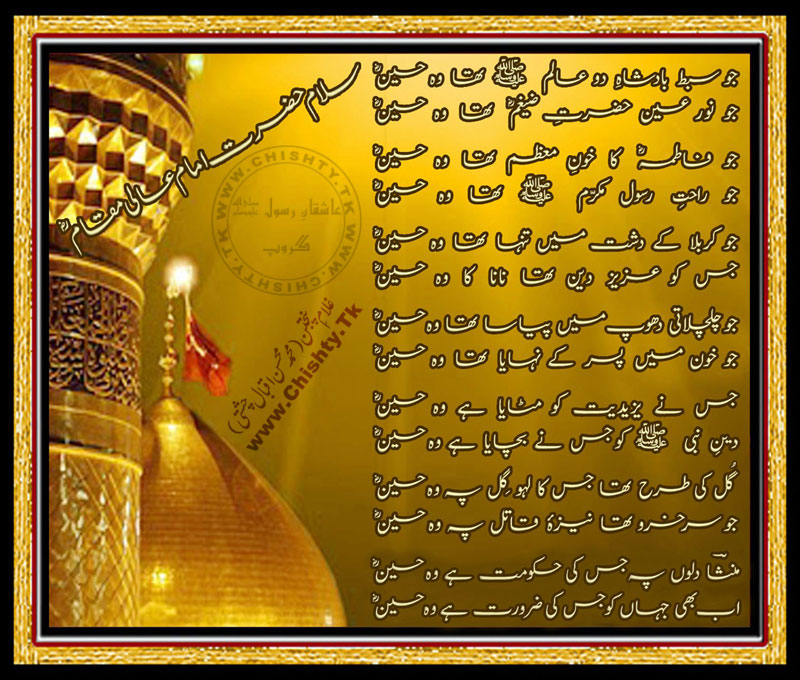 سلام حضرت امام عالی مقامؓ
جو سبطِ بادشاہِ دو عالم ﷺ تھا وہ حسینؓ
جو نور عین حضرتِ ضیغمؓ تھا وہ حسینؓ
جو فاطمہؓ کا خونِ معظم تھا وہ حسینؓ
جو راحتِ رسول مکرّم ﷺ تھا وہ حسینؓ
جو کربلا کے دشت میں تنہا تھا وہ حسینؓ
جس کو عزیز دین تھا نانا کا وہ حسینؓ
جو چلچلاتی دھوپ میں پیاسا تھا وہ حسینؓ
جو خون میں پسر کے نہایا تھا وہ حسینؓ
جس نے یزیدیت کو مٹایا ہے وہ حسینؓ
دینِ نبی ﷺ کو جس نے بچایا ہے وہ حسینؓ
گُل کی طرح تھا جس کا لہو گِل پہ وہ حسینؓ
جو سرخرو تھا نیزۂ قاتل پہ وہ حسینؓ
منشاؔ دلوں پہ جس کی حکومت ہے وہ حسینؓ
اب بھی جہاں کو جس کی ضرورت ہے وہ حسینؓ
WWW.CHISHTY.TK WWW.CHISHTY.TK
عاشقانِ رسول ﷺ
گروپ
غلامِ پنجتن (محمد محسن اقبال چشتی)
www.Chishty.Tk